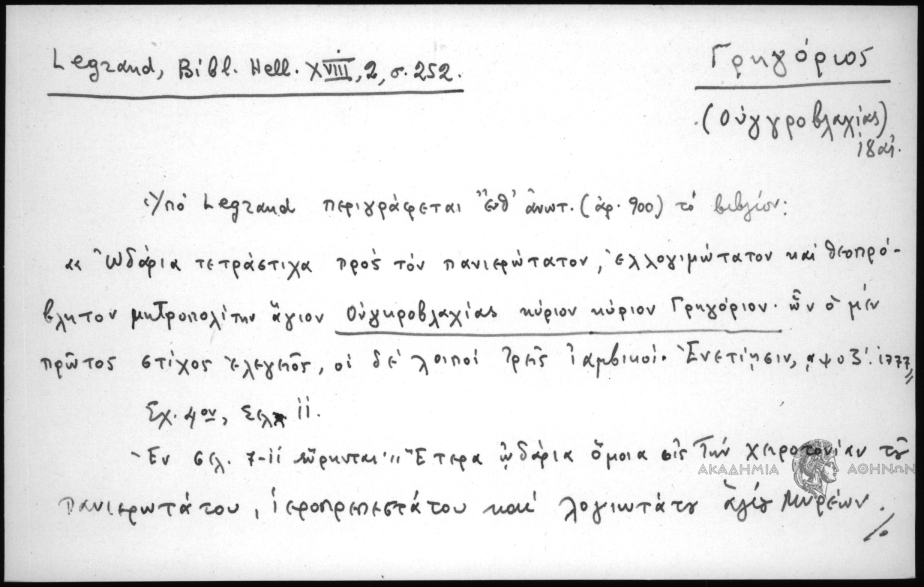 Legrand, Bibl. Hell. XVIII, 2, σ. 252.
Γρηγόριος
(Οὑγγροβλαχίας)
18 αἰ.
Ὑπὸ Legrand περιγράφεται ἔνθ' ἀνωτ. (ἀρ. 900) τὸ βιβλίον:
«Ὠδάρια τετράστιχα πρὸς τὸν πανιερώτατον, ἐλλογιμώτατον καὶ θεοπρό-
βλητον μητροπολίτην ἅγιον Οὑγκροβλαχίας κύριον κύριον Γρηγόριον. ὧν ὁ μὲν
πρῶτος στίχος ἐλεγεῖος, οἱ δὲ λοιποὶ τρεῖς ἰαμβικοί. Ἐνετίῃσιν, ͵αψοζ'. 1777,,
Σχ. 4ον, Σελ. 11.
Ἐν σελ. 7-11 εὕρηνται "Ἕτερα ᾠδάρια ὅμοια εἰς τὴν χειροτονίαν τοῦ
πανιερωτάτου, ἱεροπρεπεστάτου καὶ λογιωτάτου ἁγίου Μυρέων.
./.
ΑΚΑΔΗΜΙΑ ΑΘΗΝΩΝ